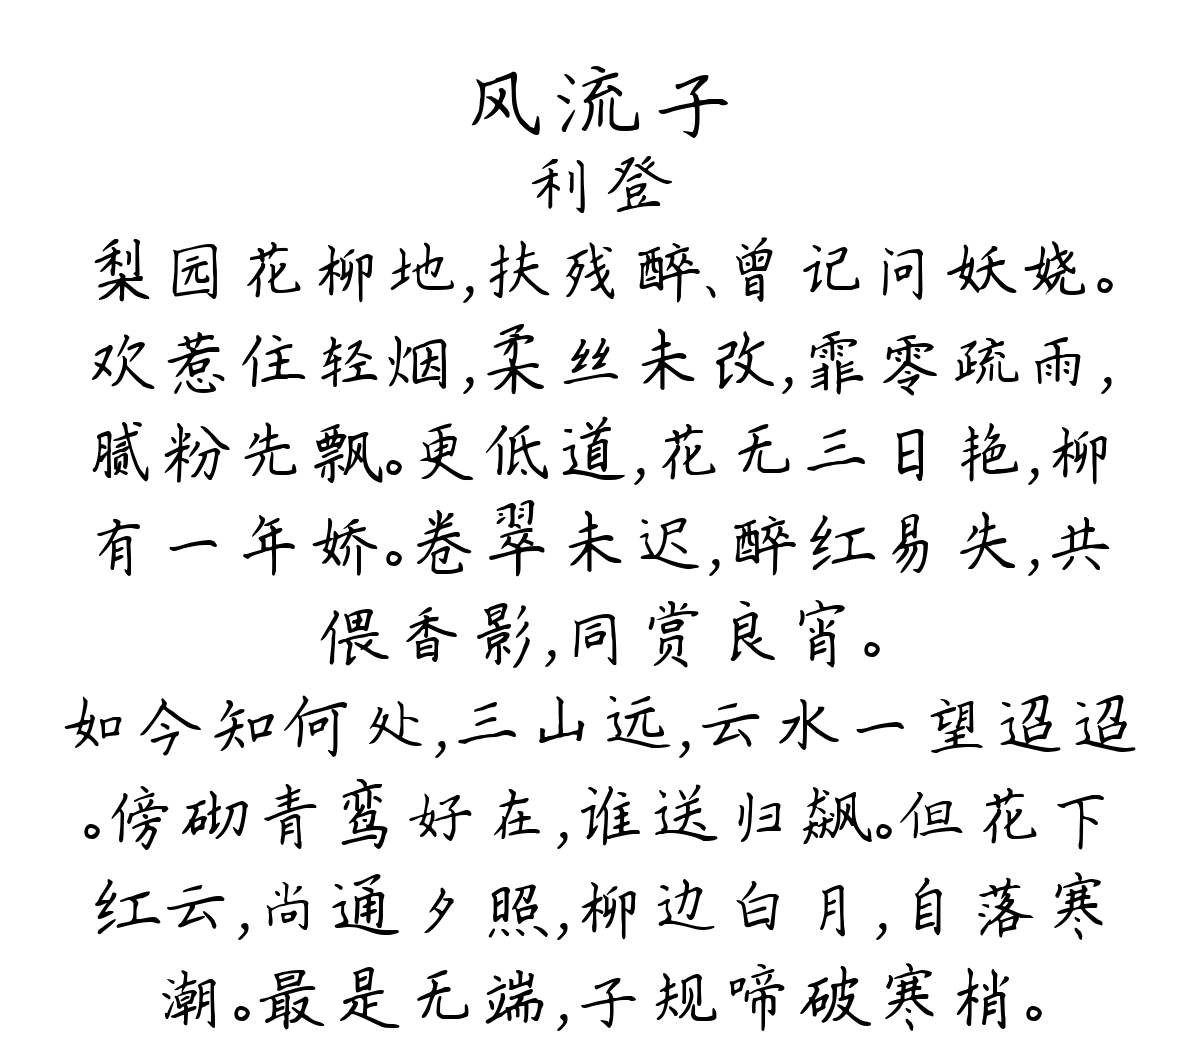 风流子
利登
梨园花柳地,扶残醉、曾记问妖娆。
欢惹住轻烟,柔丝未改,霏零疏雨,
腻粉先飘。更低道,花无三日艳,柳
有一年娇。卷翠未迟,醉红易失,共
偎香影,同赏良宵。
如今知何处,三山远,云水一望迢迢
。傍砌青鸾好在,谁送归飙。但花下
红云,尚通夕照,柳边白月,自落寒
潮。最是无端,子规啼破寒梢。